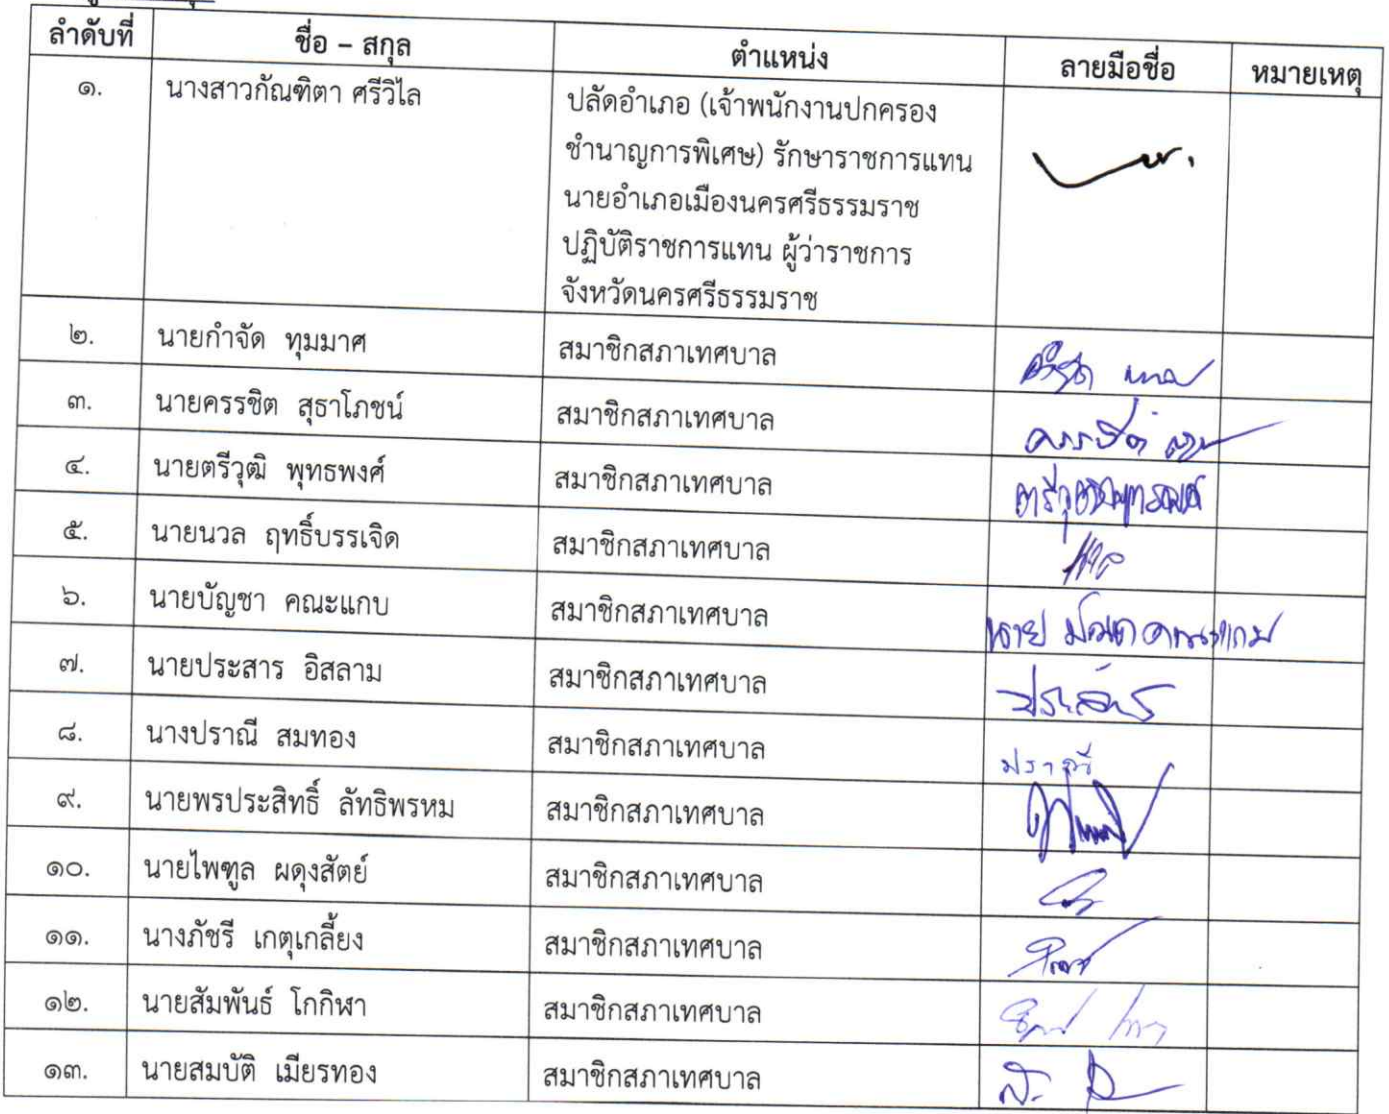 ลำดับที่ ชื่อ – สกุล ตำแหน่ง ลายมือชื่อ หมายเหตุ
๑. นางสาวกัณฑิตา ศรีวิไล ปลัดอำเภอ (เจ้าพนักงานปกครอง
ชำนาญการพิเศษ) รักษาราชการแทน
นายอำเภอเมืองนครศรีธรรมราช
ปฏิบัติราชการแทน ผู้ว่าราชการ
จังหวัดนครศรีธรรมราช
๒. นายกำจัด ทุมมาศ สมาชิกสภาเทศบาล
๓. นายครรชิต สุธาโภชน์ สมาชิกสภาเทศบาล
๔. นายตรีวุฒิ พุทธพงศ์ สมาชิกสภาเทศบาล
๕. นายนวล ฤทธิ์บรรเจิด สมาชิกสภาเทศบาล
๖. นายบัญชา คณะแกบ สมาชิกสภาเทศบาล
๗. นายประสาร อิสลาม สมาชิกสภาเทศบาล
๘. นางปราณี สมทอง สมาชิกสภาเทศบาล ปราณี
๙. นายพรประสิทธิ์ ลัทธิพรหม สมาชิกสภาเทศบาล
๑๐. นายไพฑูล ผดุงสัตย์ สมาชิกสภาเทศบาล
๑๑. นางภัชรี เกตุเกลี้ยง สมาชิกสภาเทศบาล
๑๒. นายสัมพันธ์ โกกิฬา สมาชิกสภาเทศบาล
๑๓. นายสมบัติ เมียรทอง สมาชิกสภาเทศบาล